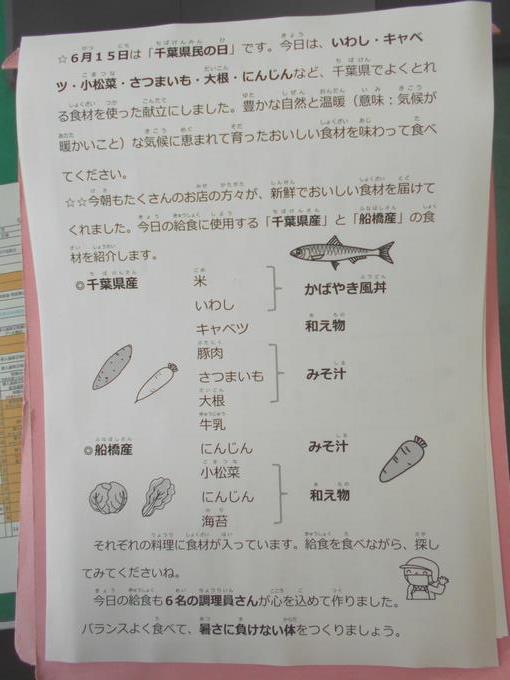 ☆６月１５日は「千葉県民の日」です。今日は、いわし・キャベ
ツ・小松菜・さつまいも・大根・にんじんなど、千葉県でよくとれ
る食材を使った献立にしました。豊かな自然と温暖（意味：気候が
暖かいこと）な気候に恵まれて育ったおいしい食材を味わって食べ
てください。
☆☆今朝もたくさんのお店の方々が、新鮮でおいしい食材を届けて
くれました。今日の給食に使用する「千葉県産」と「船橋産」の食
材を紹介します。
◎千葉県産 米
いわし
かばやき風丼
キャベツ 和え物
豚肉
さつまいも みそ汁
大根
牛乳
◎船橋産 にんじん みそ汁
小松菜
にんじん 和え物
海苔
それぞれの料理に食材が入っています。給食を食べながら、探し
てみてくださいね。
今日の給食も６名の調理員さんが心を込めて作りました。
バランスよく食べて、暑さに負けない体をつくりましょう。